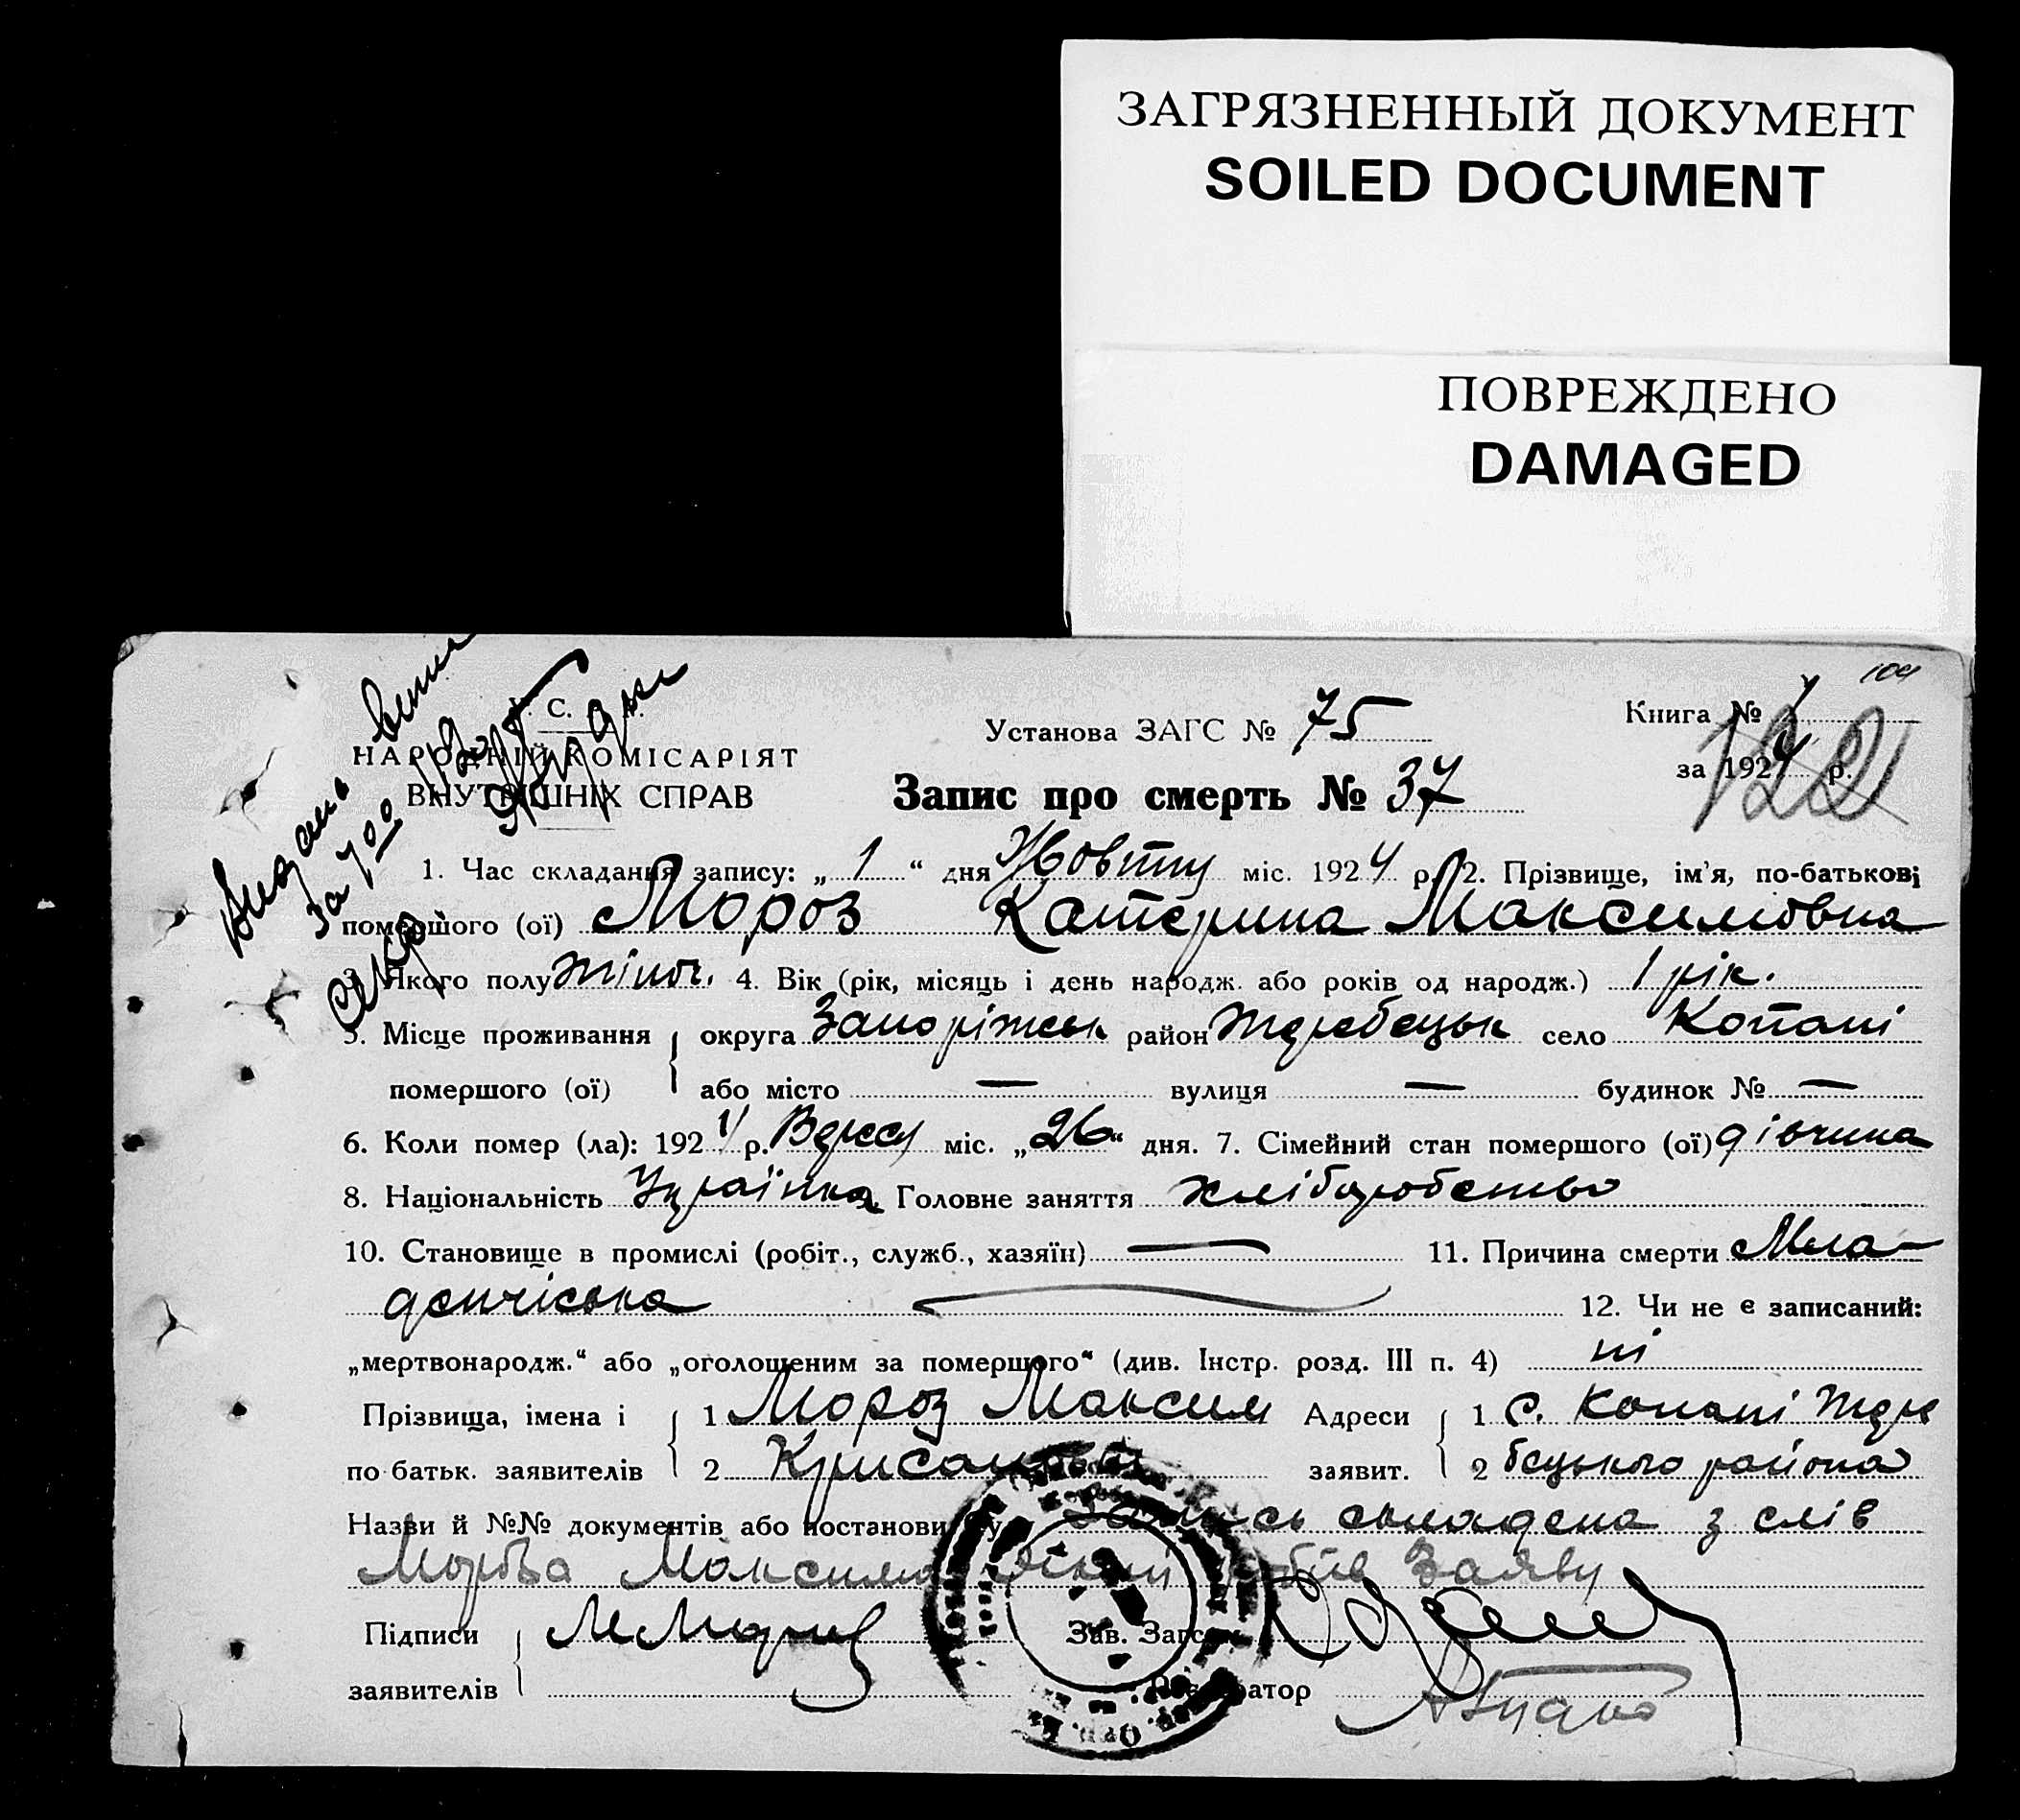 ЗАГРЯЗНЕННЫЙ ДОКУМЕНТ
SOILED DOCUMENT
ПОВРЕЖДЕНО
DAMAGED
104
НАРОДНІЙ КОМІСАРІЯТ
ВНУТРІШНІХ СПРАВ
Видано
за 700
Установа ЗАГС № 75
Книга №
за 1924 р.
122
Запис про смерть № 37
1. Час складання запису: „ 1 “ дня Жовтну міс. 1924 р. 2. Прізвище, ім'я, по-батькові
помершого (ої) Мороз Катерина Максимовна
3. Якого полу жіноч. 4. Вік (рік, місяць і день народж. або років од народж.) 1 рік.
5. Місце проживання округа Запоріжськ район Жеребецьк село Копані
помершого (ої) або місто — вулиця — будинок № —
6. Коли помер (ла): 1924 р. Вересн міс. „26“ дня. 7. Сімейний стан помершого (ої) дівчина
8. Національність Українка Головне заняття хліборобство
10. Становище в промислі (робіт., служб., хазяїн) — 11. Причина смерти Мла-
денчіська 12. Чи не є записаний:
„мертвонародж.“ або „оголошеним за помершого“ (див. Інстр. розд. III п. 4) ні
Прізвища, імена і 1 Мороз Максим Адреси 1 С. Копані Жере
по-батьк. заявителів 2 заявит. 2 бецького района
Назви й №№ документів або постанови Запись складена з слів
Мороза Максима який робив Заяву
Підписи М Мороз Зав. Загсом
заявителів Реєстратор